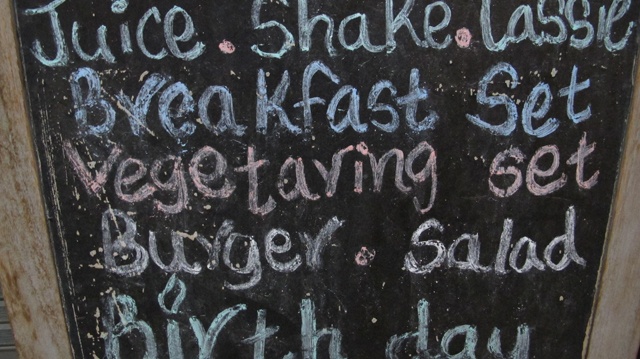 Juice . Shake . Lassie
Breakfast Set
Vegetaring set
Burger . Salad
Birth day